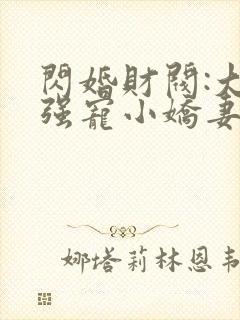 閃婚財閥:大
强寵小嬌妻
娜塔莉林恩韦